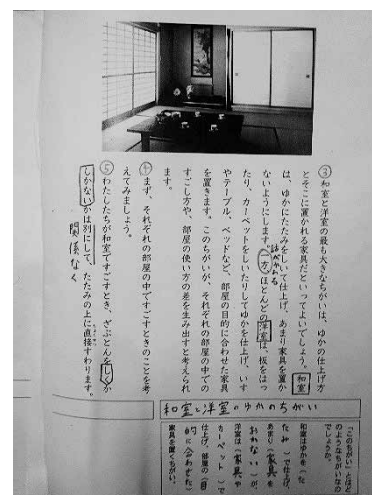 ③和室と洋室の最も大きなちがいは、ゆかの仕上げ方
とそこに置かれる家具だといってよいでしょう。和室
は、ゆかにたたみをしいて仕上げ、あまり家具を置か
ないようにします。一方、ほとんどの洋室は、板をはっ
話がかわる
たり、カーペットをしいたりしてゆかを仕上げ、いす
やテーブル、ベッドなど、部屋の目的に合わせた家具
を置きます。このちがいが、それぞれの部屋の中での
すごし方や、部屋の使い方の差を生み出すと考えられ
ます。
④まず、それぞれの部屋の中ですごすときのことを考
えてみましょう。
⑤わたしたちが和室ですごすとき、ざぶとんをしくか
しかないかは別にして、たたみの上に直接すわります。
関係なく
和室と洋室のゆかのちがい
「このちがい」とはど
のようなちがいなの
でしょうか。
和室はゆかを(た
たみ)で仕上げ、
あまり(家具を
おわない)が、
洋室は(家具や
カーペット)で
仕上げ、部屋の(目
的に合わせた)
家具を置くちがい。